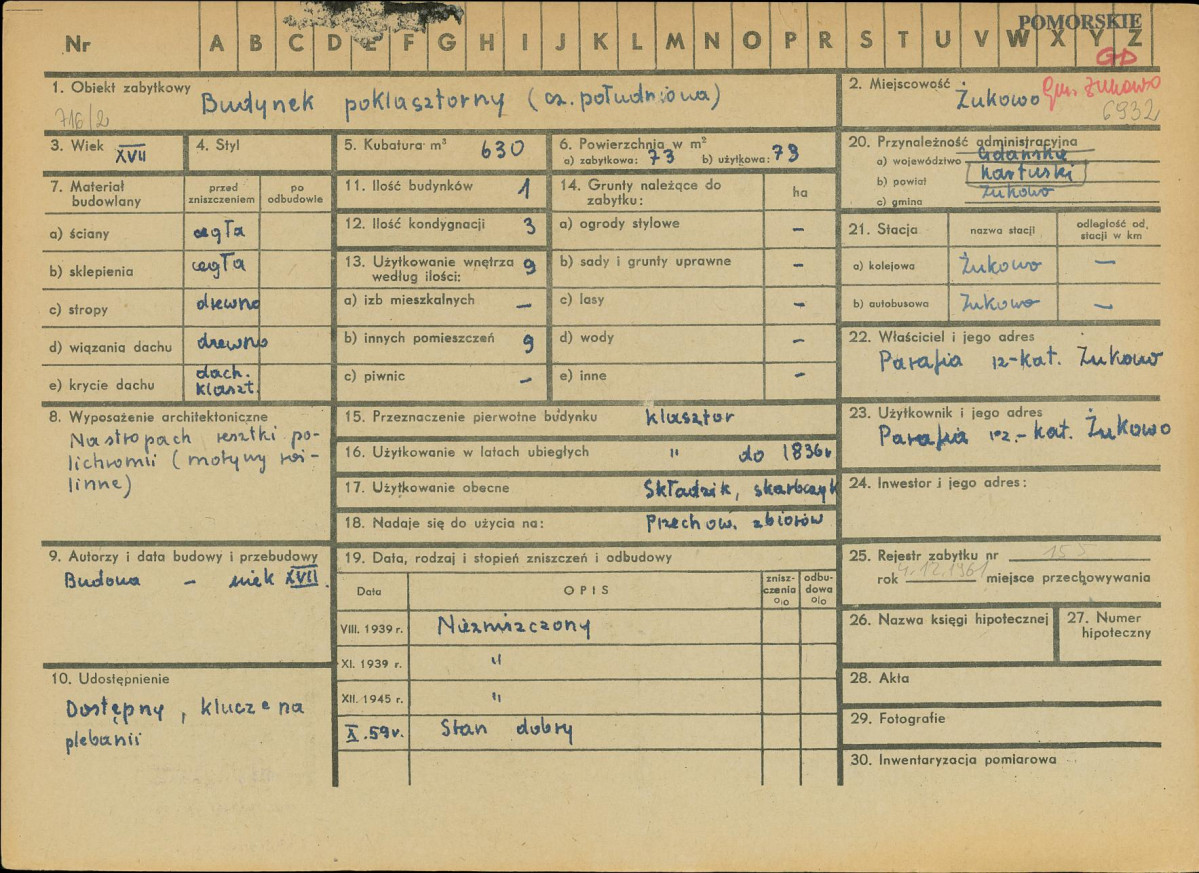 POMORSKIE
Nr A B C D E F G H I J K L M N O P R S T U V W X Y Z
GD
1. Obiekt zabytkowy Budynek poklasztorny (cz. południowa)
716/2
2. Miejscowość Żukowo Gm. Żukowo
6932
3. Wiek XVII
4. Styl
5. Kubatura m³ 630
6. Powierzchnia w m²
a) zabytkowa: 73 b) użytkowa: 79
20. Przynależność administracyjna
a) województwo Gdańskie
b) powiat kartuski
c) gmina Żukowo
7. Materiał budowlany
przed zniszczeniem
po odbudowie
a) ściany cegła
b) sklepienia cegła
c) stropy drewno
d) wiązania dachu drewno
e) krycie dachu dach. klaszt.
11. Ilość budynków 1
12. Ilość kondygnacji 3
13. Użytkowanie wnętrza według ilości: 9
a) izb mieszkalnych –
b) innych pomieszczeń 9
c) piwnic –
14. Grunty należące do zabytku: ha
a) ogrody stylowe –
b) sady i grunty uprawne –
c) lasy –
d) wody –
e) inne –
21. Stacja
nazwa stacji
odległość od stacji w km
a) kolejowa Żukowo —
b) autobusowa Żukowo —
22. Właściciel i jego adres
Parafia rz-kat. Żukowo
8. Wyposażenie architektoniczne
Na stropach resztki po-
lichromii (motywy roś-
linne)
15. Przeznaczenie pierwotne budynku klasztor
16. Użytkowanie w latach ubiegłych " do 1836r
17. Użytkowanie obecne Składzik, skarbczyk
18. Nadaje się do użycia na: Przechow. zbiorów
23. Użytkownik i jego adres
Parafia rz.-kat. Żukowo
24. Inwestor i jego adres:
9. Autorzy i data budowy i przebudowy
Budowa – wiek XVII.
10. Udostępnienie
Dostępny, klucze na
plebanii
19. Data, rodzaj i stopień zniszczeń i odbudowy
Data
OPIS
zniszczenia o/o
odbudowa o/o
VIII. 1939 r. Niezniszczony
XI. 1939 r. "
XII. 1945 r. "
X.59r. Stan dobry
25. Rejestr zabytku nr 155
rok 4.12.1961 miejsce przechowywania
26. Nazwa księgi hipotecznej
27. Numer hipoteczny
28. Akta
29. Fotografie
30. Inwentaryzacja pomiarowa